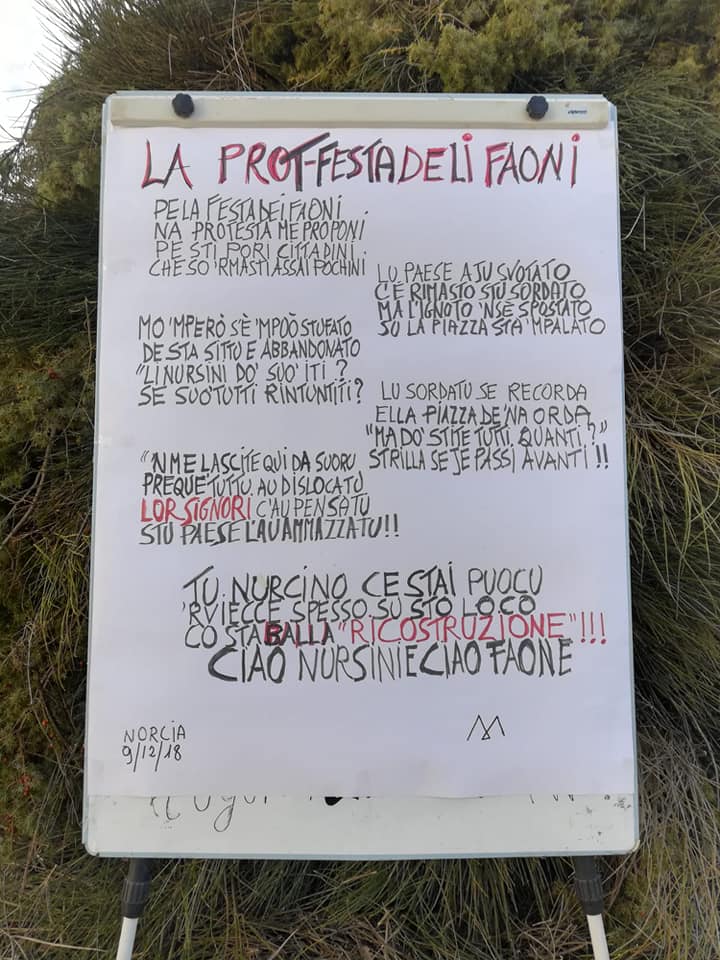 LA PROT-FESTA DELI FAONI
PE LA FESTA DEI FAONI
NA PROTESTA ME PROPONI
PE STI PORI CITTADINI
CHE SO 'RMASTI ASSAI POCHINI
LU PAESE A TU SVOTATO
C'È RIMASTO STU SORDATO
MA L'IGNOTO 'NSÈ SPOSTATO
SU LA PIAZZA STA 'MPALATO
MO 'MPERÒ S'È 'MPOÒ STUFATO
DE STA SITTU E ABBANDONATO
"LI NURSINI DO' SUO' ITI ?
SE SUO' TUTTI RINTUNTITI?
LU SORDATU SE RECORDA
ELLA PIAZZA DE 'NA ORDA
"MA DO' STITE TUTTI QUANTI ?"
STRILLA SE JE PASSI AVANTI !!
"'NME LASCITE QUI DA SUORU
PREQUE' TUTTU AU DISLOCATU
LOR SIGNORI C'AU PENSATU
STU PAESE L'AU AMMAZZATU!!
TU NURCINO CE STAI PUOCU
'RVIECCE SPESSO SU STO LOCO
CO STA BALLA "RICOSTRUZIONE"!!!
CIAO NURSINI E CIAO FAONE
NORCIA
9/12/18